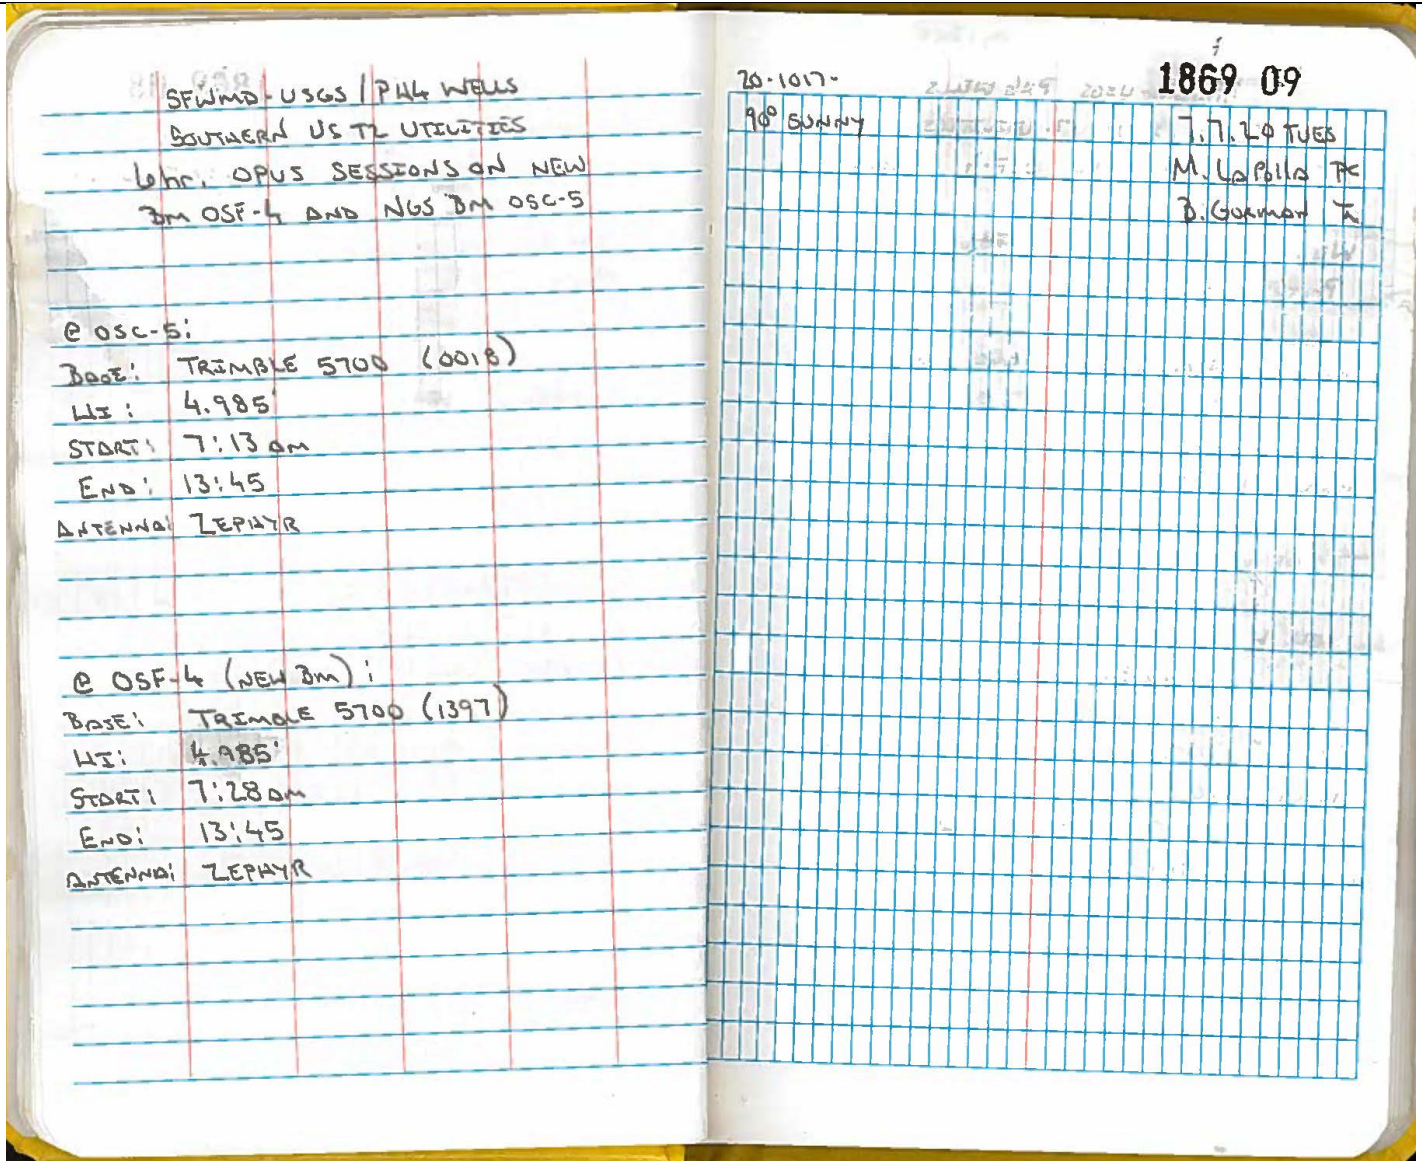 SFWMD-USGS / PH4 WELLS
SOUTHERN US T2 UTILITIES
6hr. OPUS SESSIONS ON NEW
BM OSF-4 AND NGS BM OSC-5
@ OSC-5:
BASE: TRIMBLE 5700 (0018)
HI: 4.985'
START: 7:13 AM
END: 13:45
ANTENNA: ZEPHYR
@ OSF-4 (NEW BM):
BASE: TRIMBLE 5700 (1397)
HI: 4.985'
START: 7:28 AM
END: 13:45
ANTENNA: ZEPHYR
20-1017-
1869 09
90° SUNNY 7.7.20 TUES
M. LaPolla PC
B. Gorman